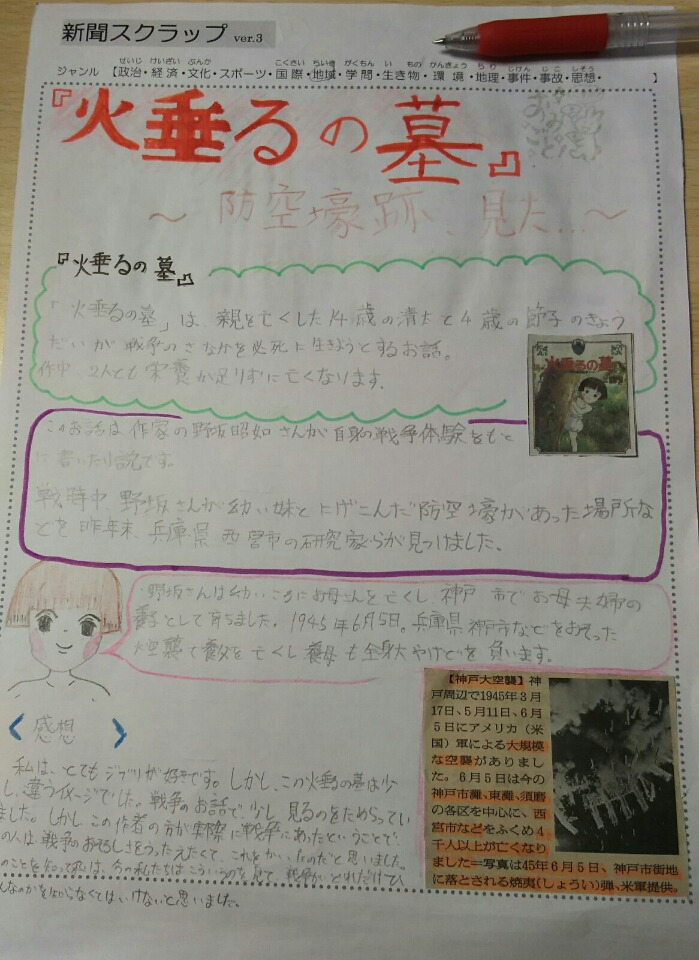 新聞スクラップ ver.3
せいじ けいざい ぶんか こくさい ちいき がくもん い もの かんきょう ちり じけん じこ しそう
ジャンル 【政治・経済・文化・スポーツ・国際・地域・学問・生き物・環境・地理・事件・事故・思想・ 】
『火垂るの墓』
～防空壕跡、見た…～
『火垂るの墓』
「火垂るの墓」は、親を亡くした14歳の清太と4歳の節子のきょう
だいが戦争のさなかを必死に生きようとするお話。
作中、2人とも栄養が足りずに亡くなります。
火垂るの墓
このお話は作家の野坂昭如さんが自身の戦争体験をもと
に書いた小説です。
戦時中、野坂さんが幼い妹とにげこんだ防空壕があった場所な
どを昨年末、兵庫県西宮市の研究家らが見つけました。
野坂さんは幼いころにお母さんを亡くし、神戸市でお母夫婦の
養子として育ちました。1945年6月5日。兵庫県神戸市などをおそった
大空襲で養父を亡くし養母も全身大やけどを負います。
【神戸大空襲】神
戸周辺で1945年3月
17日、5月11日、6月
5日にアメリカ(米
国)軍による大規模
な空襲がありまし
た。6月5日は今の
神戸市灘、東灘、須磨
の各区を中心に、西
宮市などをふくめ4
千人以上が亡くなり
ました=写真は45年6月5日、神戸市街地
に落とされる焼夷(しょうい)弾、米軍提供。
感想
私は、とてもジブリが好きです。しかし、この火垂るの墓は少
し、違うイメージでした。戦争のお話で少し、見るのをためらってい
ました。しかしこの作者の方が実際に戦争にあったということで、
の人は、戦争のおそろしさをうったえたくて、これをかいたのだと思いました。
のことを知って私は、今の私たちはこういうのを見て、戦争が、どれだけひ
んなのかを知らなくては、いけないと思いました。